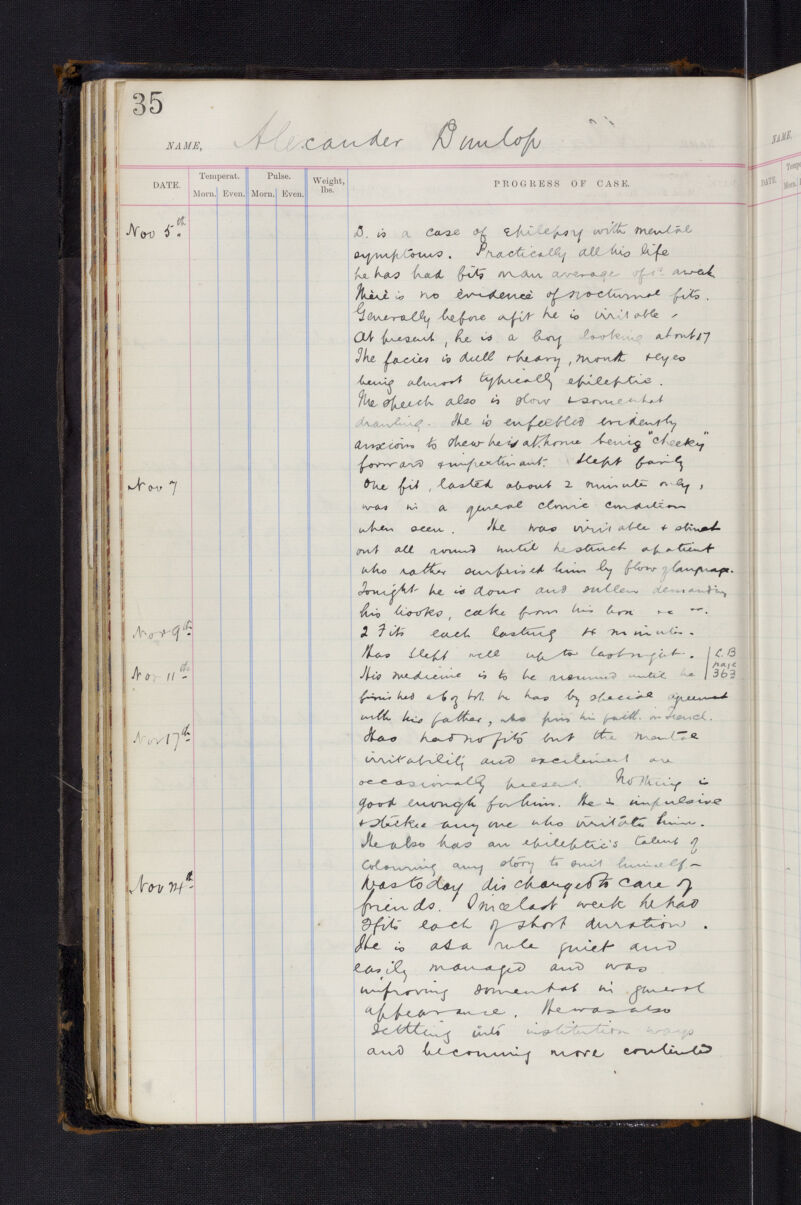 35
NAME, Alexander Dunlop
DATE. Temperat. Pulse. Weight, lbs. PROGRESS OF CASE.
Morn. Even. Morn. Even.
Nov 5th D. is a case of Epilepsy with mental
symptoms. Practically all his life
he has had fits on an average of 1 a week
There is no evidence of nocturnal fits.
Generally before a fit he is irritable.
At present, he is a boy looking about 17
The facies is dull & heavy, mouth & eyes
being almost typically epileptic.
The speech also is slow & somewhat
drawling. He is enfeebled evidently
anxious to shew he is at home being "cheeky"
forward & impertinent. Slept fairly
Nov 7 One fit, lasted about 2 minutes only,
was in a general clonic condition
when seen. He was irritable & struck
out all round until he struck a patient
who rather surprised him by flow of language.
Tonight he is dour and sullen demanding
his books, cake from his box &c &c.
Nov 9th 2 Fits each lasting minutes.
Has slept well up to last night.
Nov 11th His medicine is to be resumed until he
C.B page 363
finished a 6 oz bot. he has by special agreement
with his father, who pins his faith on
Nov 17th Has had no fits but the mental
irritability and excitement are
occasionally present. Nothing is
good enough for him. He is impulsive
& strikes any one who irritates him.
He also has an epileptic's talent of
colouring any story to suit himself
Nov 24th Was today discharged to care of
friends. Since last week he had
fits each of short duration.
He is as a rule quiet and
easily managed and was
improving somewhat in general
appearance. He was also
settling into institution ways
and becoming more contented
NAME.
DATE.
Morn.